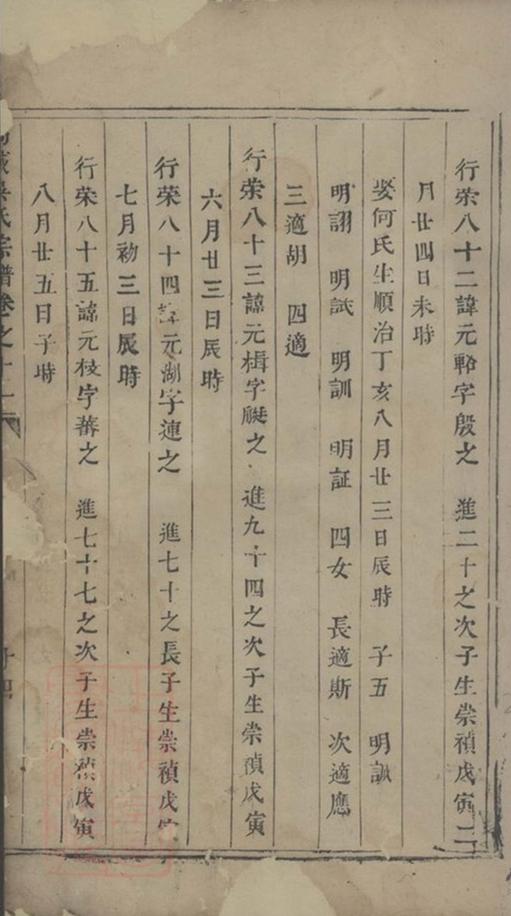 行荣八十二諱元輅字殷之　進二十之次子生崇禎戊寅二
月廿四日未時
娶何氏生順治丁亥八月廿三日辰時　子五　明
明詡　明試　明訓　明証　四女　長適斯　次適應
三適胡　四適
行荣八十三諱元楫字之　進九十四之次子生崇禎戊寅
六月廿三日辰時
行荣八十四諱元湖字連之　進七十之長子生崇禎戊
七月初三日辰時
行荣八十五諱元枝字蕃之　進七十七之次子生崇禎戊寅
八月廿五日子時
氏宗譜卷之十二　十四